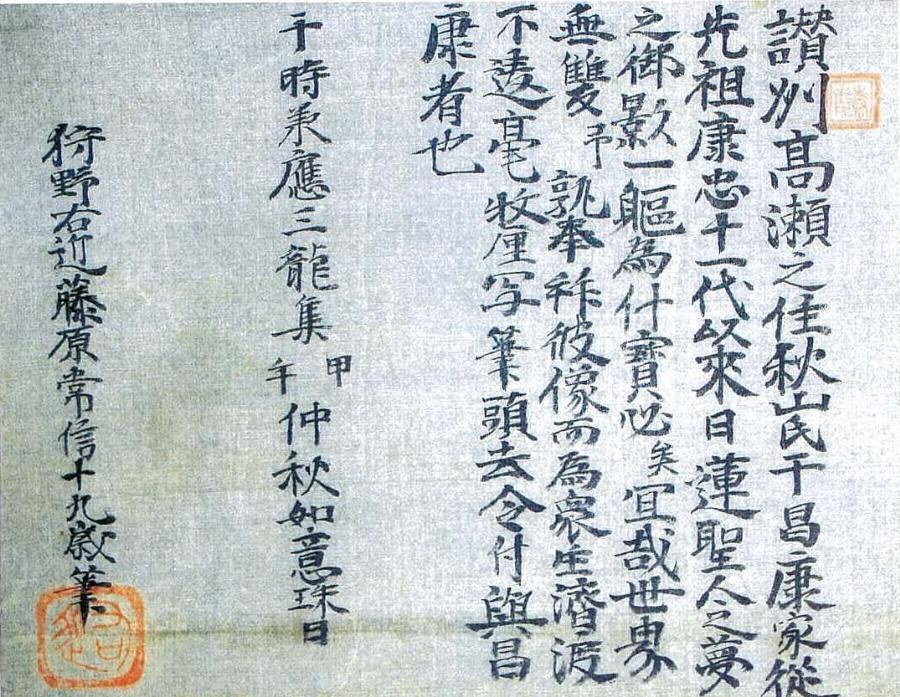 讃州髙瀬之住秋山氏干昌康家從
先祖康忠十一代以來日蓮聖人之夢
之御影一軀為什寶必矣宜哉世界
無雙予孰奉拜彼像而為衆生濟渡
不違毫牧厘写筆頭去令付與昌
康者也
于時承應三龍集甲午仲秋如意珠日
狩野右近藤原常信十九歳筆